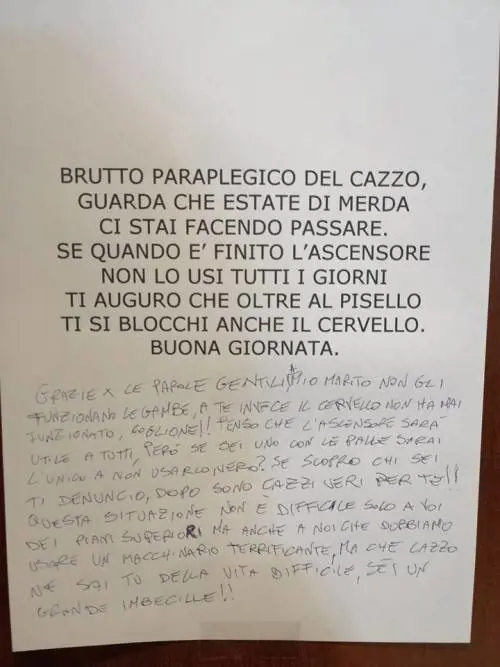 BRUTTO PARAPLEGICO DEL CAZZO,
GUARDA CHE ESTATE DI MERDA
CI STAI FACENDO PASSARE.
SE QUANDO E' FINITO L'ASCENSORE
NON LO USI TUTTI I GIORNI
TI AUGURO CHE OLTRE AL PISELLO
TI SI BLOCCHI ANCHE IL CERVELLO.
BUONA GIORNATA.
GRAZIE X LE PAROLE GENTILI, A MIO MARITO NON GLI
FUNZIONANO LE GAMBE, A TE INVECE IL CERVELLO NON HA MAI
FUNZIONATO, COGLIONE!! PENSO CHE L'ASCENSORE SARA'
UTILE A TUTTI, PERÒ SE SEI UNO CON LE PALLE SARAI
L'UNICO A NON USARLO, VERO? SE SCOPRO CHI SEI
TI DENUNCIO, DOPO SONO CAZZI VERI PER TE!!
QUESTA SITUAZIONE NON È DIFFICILE SOLO A VOI
DEI PIANI SUPERIORI MA ANCHE A NOI CHE DOBBIAMO
USARE UN MACCHINARIO TERRIFICANTE, MA CHE CAZZO
NE SAI TU DELLA VITA DIFFICILE, SEI UN
GRANDE IMBECILLE!!